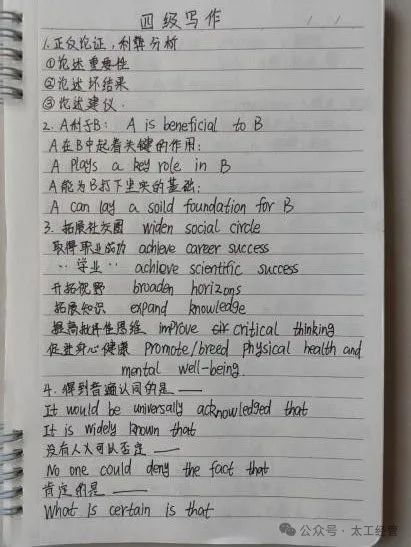 四级写作
1.正反论证,利弊分析
①论述重要性
②论述坏结果
③论述建议.
2. A利于B: A is beneficial to B
A在B中起着关键的作用:
A plays a key role in B
A能为B打下坚实的基础:
A can lay a soild foundation for B
3. 拓展社交圈 widen social circle
取得职业成功 achieve career success
‥ 学业 ‥ achieve scientific success
开拓视野 broaden horizons
拓展知识 expand knowledge
提高批评性思维 improve critical thinking
促进身心健康 Promote/breed physical health and
mental well-being.
4. 得到普遍认同的是 ——
It would be universally acknowledged that
It is widely known that
没有人可以否定 ——
No one could deny the fact that
肯定的是 ——
What is certain is that
公众号 · 太工经管